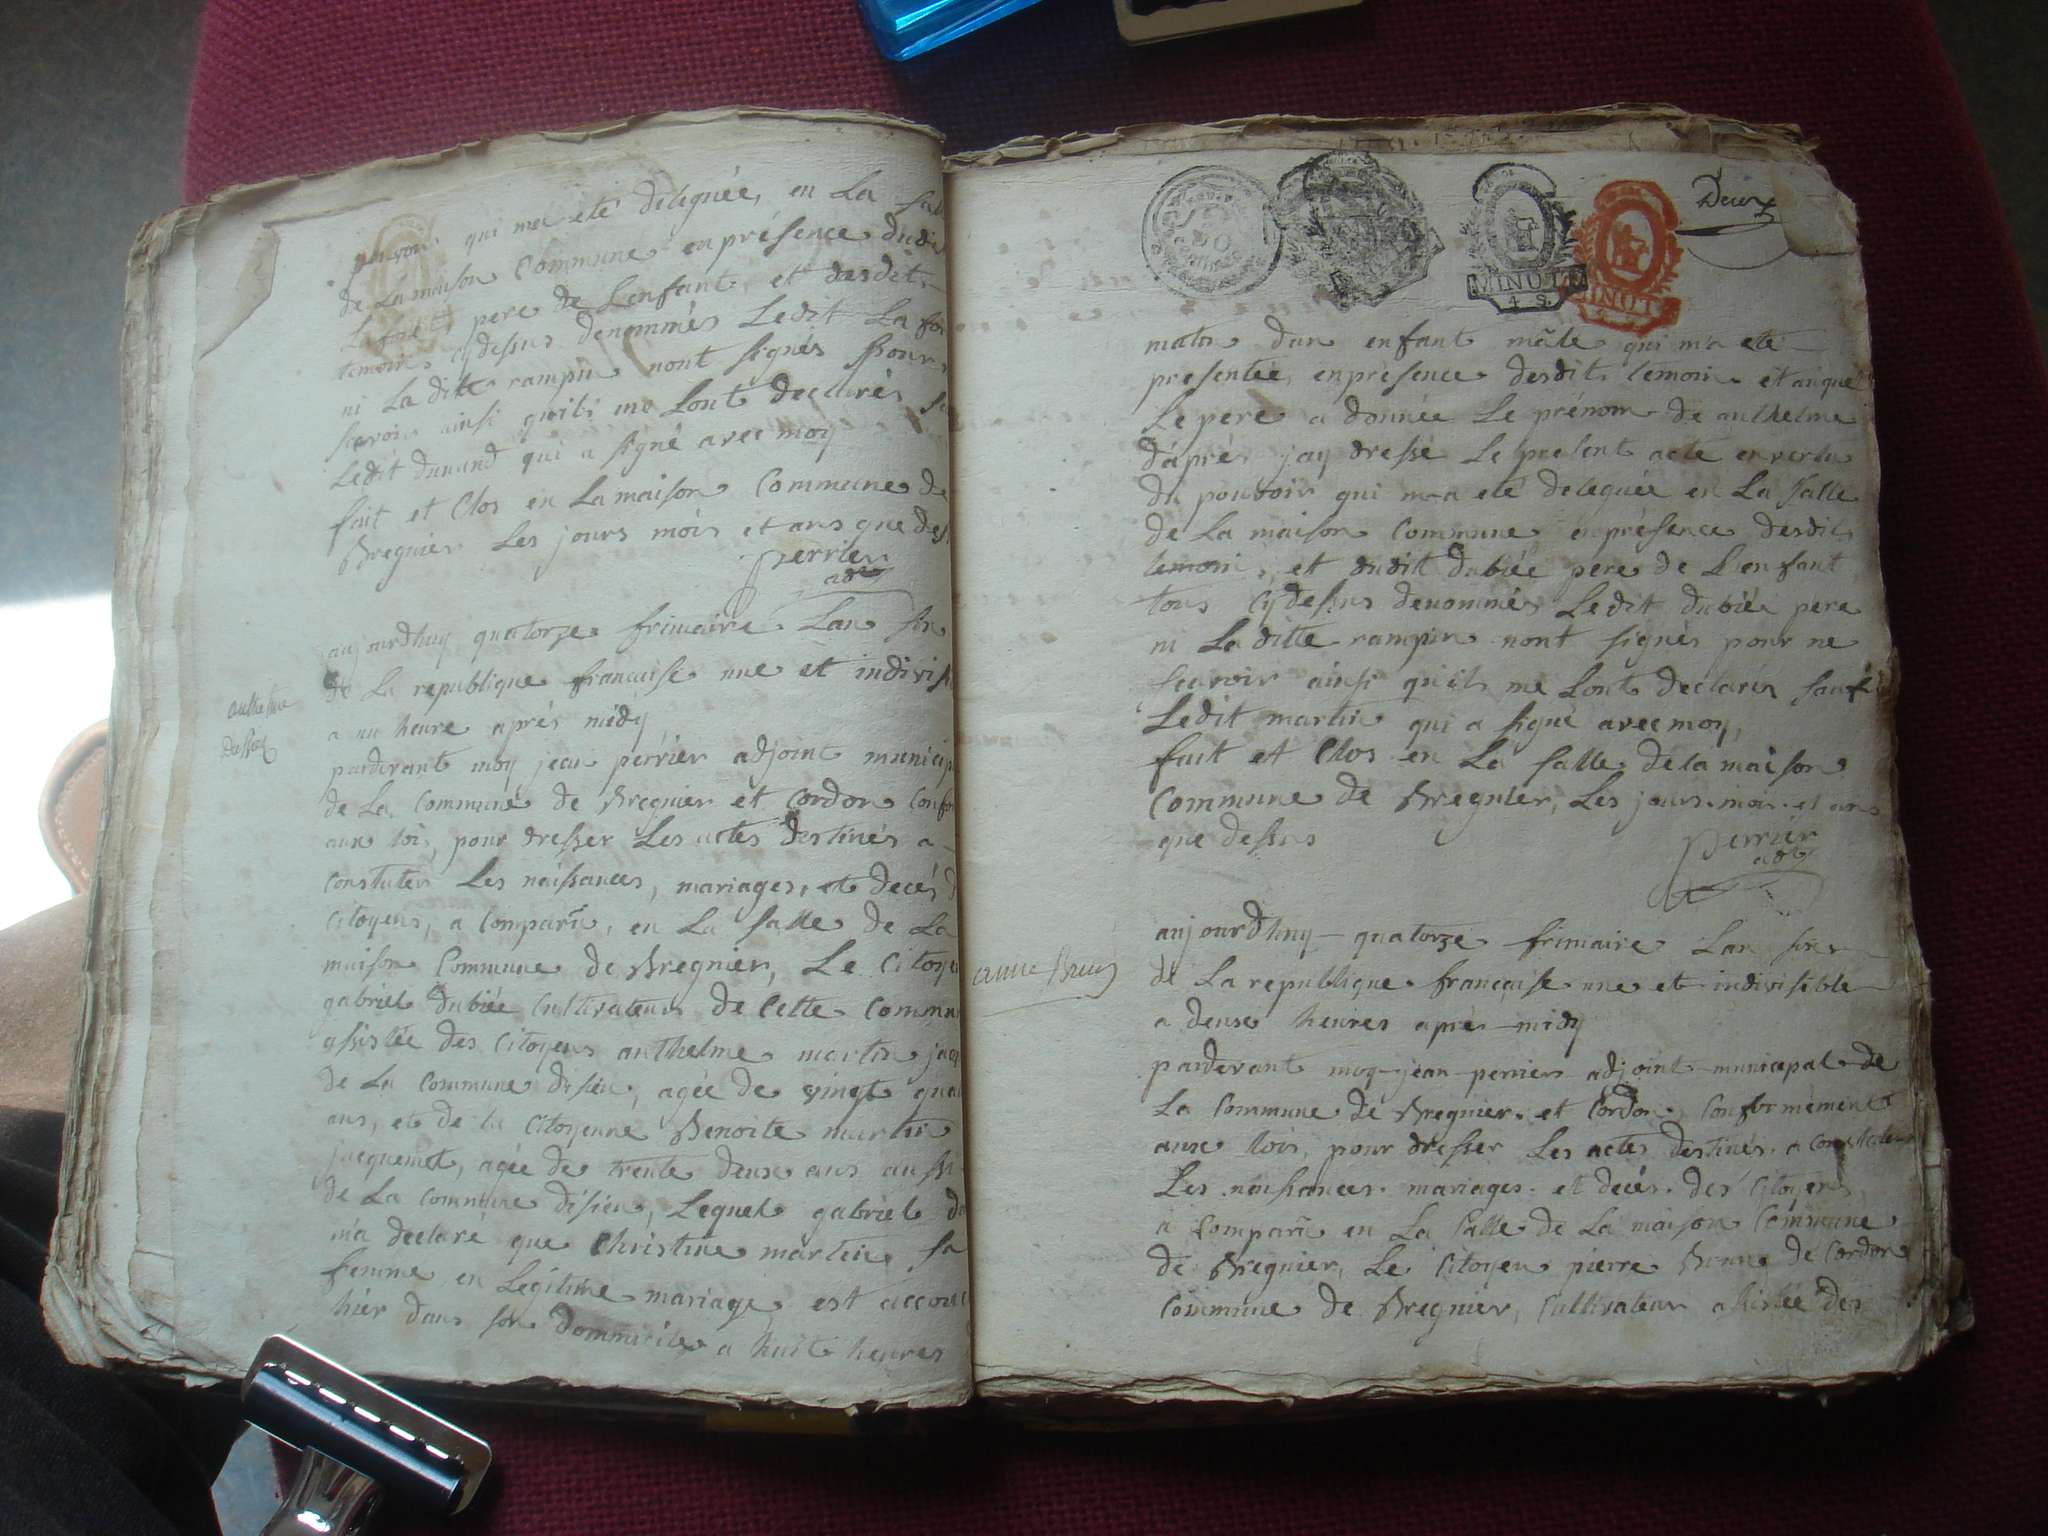 pouvoir qui ma eté deleguée, en La
de La maison Commune en présence dudit
pere de Lenfant, et desdit
temoin, cydessus denommés Ledit La
ni La ditte rampin nont signés pour
scavoir ainsi quils me Lont declarés
Ledit dunand qui a signé avec moy
fait et Clos en La maison Commune de
Bregnier Les jours mois et ans que
perrier
adj
aujourdhuy quatorze frimaire Lan six
de La republique francaise une et
a un heure aprés midy
anthelme
pardevant moy jean perrier adjoint
de La Commune de Bregnier et Cordon
aux loix, pour dresser Les actes destinés a
Constater Les naissances, mariages, et decés
Citoyens, a Comparu, en La salle de La
maison Commune de Bregnier, Le
gabriel dubiée Cultivateur de Cette
assistée des Citoyens anthelme martin
de La Commune disieu, agée de vingt
ans, et de la Citoyenne Benoite martin
jacquemet, agée de trente deux ans aussi
de La Commune disieu, Lequel gabriel
ma declaré que Christine martin sa
femme en Legitime mariage, est
hier dans son dommicile a huit heures
50
MINUTE
4 S.
MINUTE
Deux
matin dun enfant mâle qui ma eté
presentée, en présence desdit temoin et auquel
Le pere a donnée Le prénom de anthelme
d'aprés jay dressé Le présent acte en vertu
du pouvoir qui m-a eté deleguée en La salle
de La maison Commune en présence desdit
temoin, et dudit dubiée pere de Lenfant
tous cydessus denommés Ledit dubiée pere
ni La ditte rampin nont signés pour ne
scavoir ainsi quils me Lont declarés sauf
Ledit martin qui a signé avec moy,
fait et Clos en La salle de la maison
Commune de Bregnier, Les jours mois et ans
que dessus
perrier
adj
aujourdhuy quatorze frimaire Lan six
anne
de La republique française une et indivisible
a deux heures aprés midy
pardevant moy jean perrier adjoint municipal de
La Commune de Bregnier et Cordon, Conformément
aux loix, pour dresser Les actes destinés a Constater
Les naissances, mariages, et decés des Citoyens,
a Comparu en La salle de La maison Commune
de Bregnier, Le Citoyen pierre de Cordon
Commune de Bregnier, Cultivateur assistée des